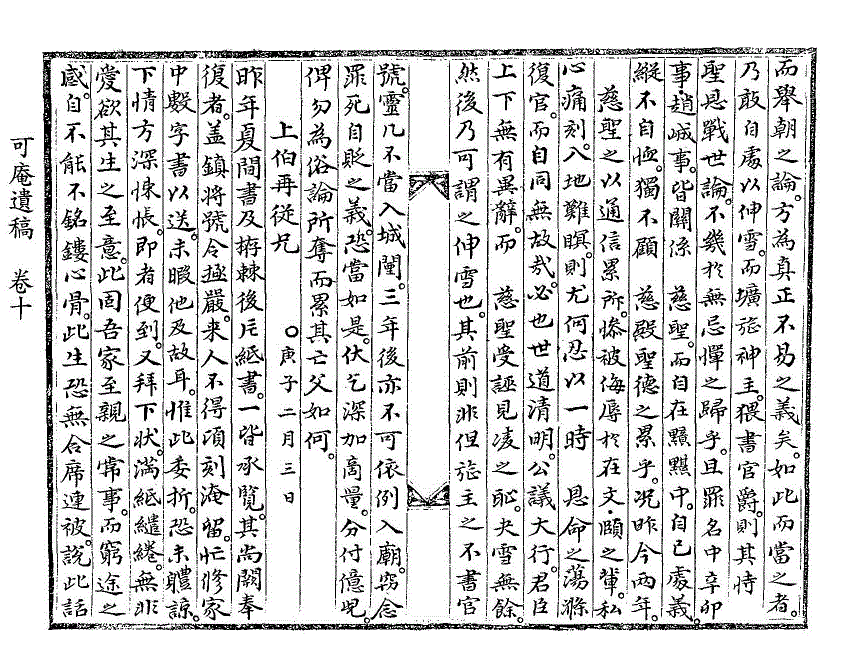 而舉朝之論。方為真正不易之義矣。如此而當之者。
乃敢自處以伸雪。而壙旌神主。猥書官爵。則其恃
聖恩戰世論。不幾於無忌憚之歸乎。且罪名中辛卯
事趙䃏事。皆關係 慈聖。而自在黯黮中。自己處義。
縱不自恤。獨不顧 慈殿聖德之累乎。况昨今兩年。
慈聖之以通信累所。慘被侮辱於在文·頤之輩。私
心痛刻。入地難瞑。則尤何忍以一時 恩命之蕩滌
復官。而自同無故哉。必也世道清明。公議大行。君臣
上下無有異辭。而 慈聖受誣見凌之耻。夬雪無餘。
然後乃可謂之伸雪也。其前則非但旌主之不書官
號。靈几不當入城闉。三年後亦不可依例入廟。窃念
罪死自貶之義。恐當如是。伏乞深加商量。分付億兒。
俾勿為俗論所奪而累其亡父如何。
上伯再從兄 ○庚子二月三日
昨年夏間書及栫棘後片紙書。一皆承覽。其尚闕奉
復者。盖鎮將號令極嚴。来人不得頃刻淹留。忙修家
中數字書以送。未暇他及故耳。惟此委折。恐未軆諒。
下情方深悚悵。即者便到。又拜下狀。滿紙繾綣。無非
愛欲其生之至意。此固吾家至親之常事。而窮途之
感。自不能不銘鏤心骨。此生恐無合席連被說此話
可庵遺稿 卷十